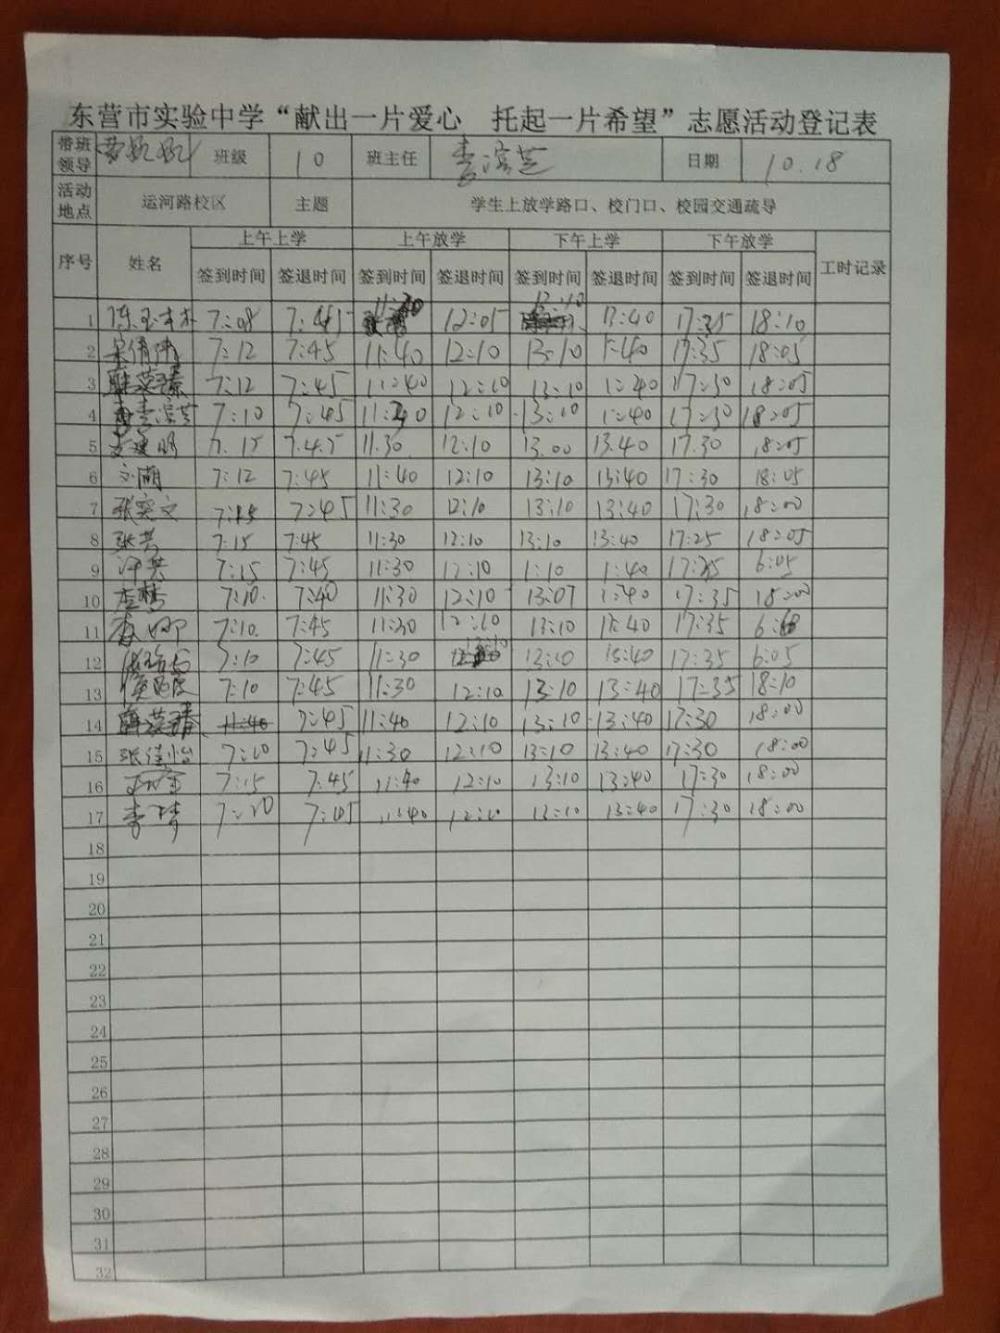 东营市实验中学“献出一片爱心 托起一片希望”志愿活动登记表
带班领导 班级 10 班主任 李滨芝 日期 10.18
活动地点 运河路校区 主题 学生上放学路口、校门口、校园交通疏导
序号 姓名 上午上学 上午放学 下午上学 下午放学 工时记录
签到时间 签退时间 签到时间 签退时间 签到时间 签退时间 签到时间 签退时间
1 7:08 7:45 11:30 12:05 13:10 13:40 17:35 18:10
2 7:12 7:45 11:40 12:10 13:10 1:40 17:35 18:05
3 7:12 7:45 11:40 12:10 13:10 1:40 17:30 18:05
4 李滨芝 7:10 7:45 11:30 12:10 13:10 1:40 17:30 18:05
5 7.15 7.45 11.30 12:10 13.00 13.40 17.30 18:05
6 文湖 7:12 7:45 11:40 12:10 13:10 13:40 17:30 18:05
7 张奕文 7:15 7:45 11:30 12:10 13:10 13:40 17:30 18:00
8 张芸 7:15 7:45 11:30 12:10 13:10 13:40 17:25 18:05
9 7:15 7:45 11:30 12:10 1:10 1:40 17:25 6:05
10 7:10 7:40 11:30 12:10 13:07 1:40 17:35 18:00
11 7:10 7:45 11:30 12:10 13:10 13:40 17:35
12 7:10 7:45 11:30 12:10 13:10 13:40 17:35 6:05
13 7:10 7:45 11:30 12:10 13:10 13:40 17:35 18:10
14 11:40 7:45 11:40 12:10 13:10 13:40 17:30 18:00
15 张佳怡 7:10 7:45 11:30 12:10 13:10 13:40 17:30 18:00
16 7:15 7:45 11:40 12:10 13:10 13:40 17:30 18:00
17 李倩 7:20 7:45 11:40 12:10 13:10 13:40 17:30 18:00
18
19
20
21
22
23
24
25
26
27
28
29
30
31
32